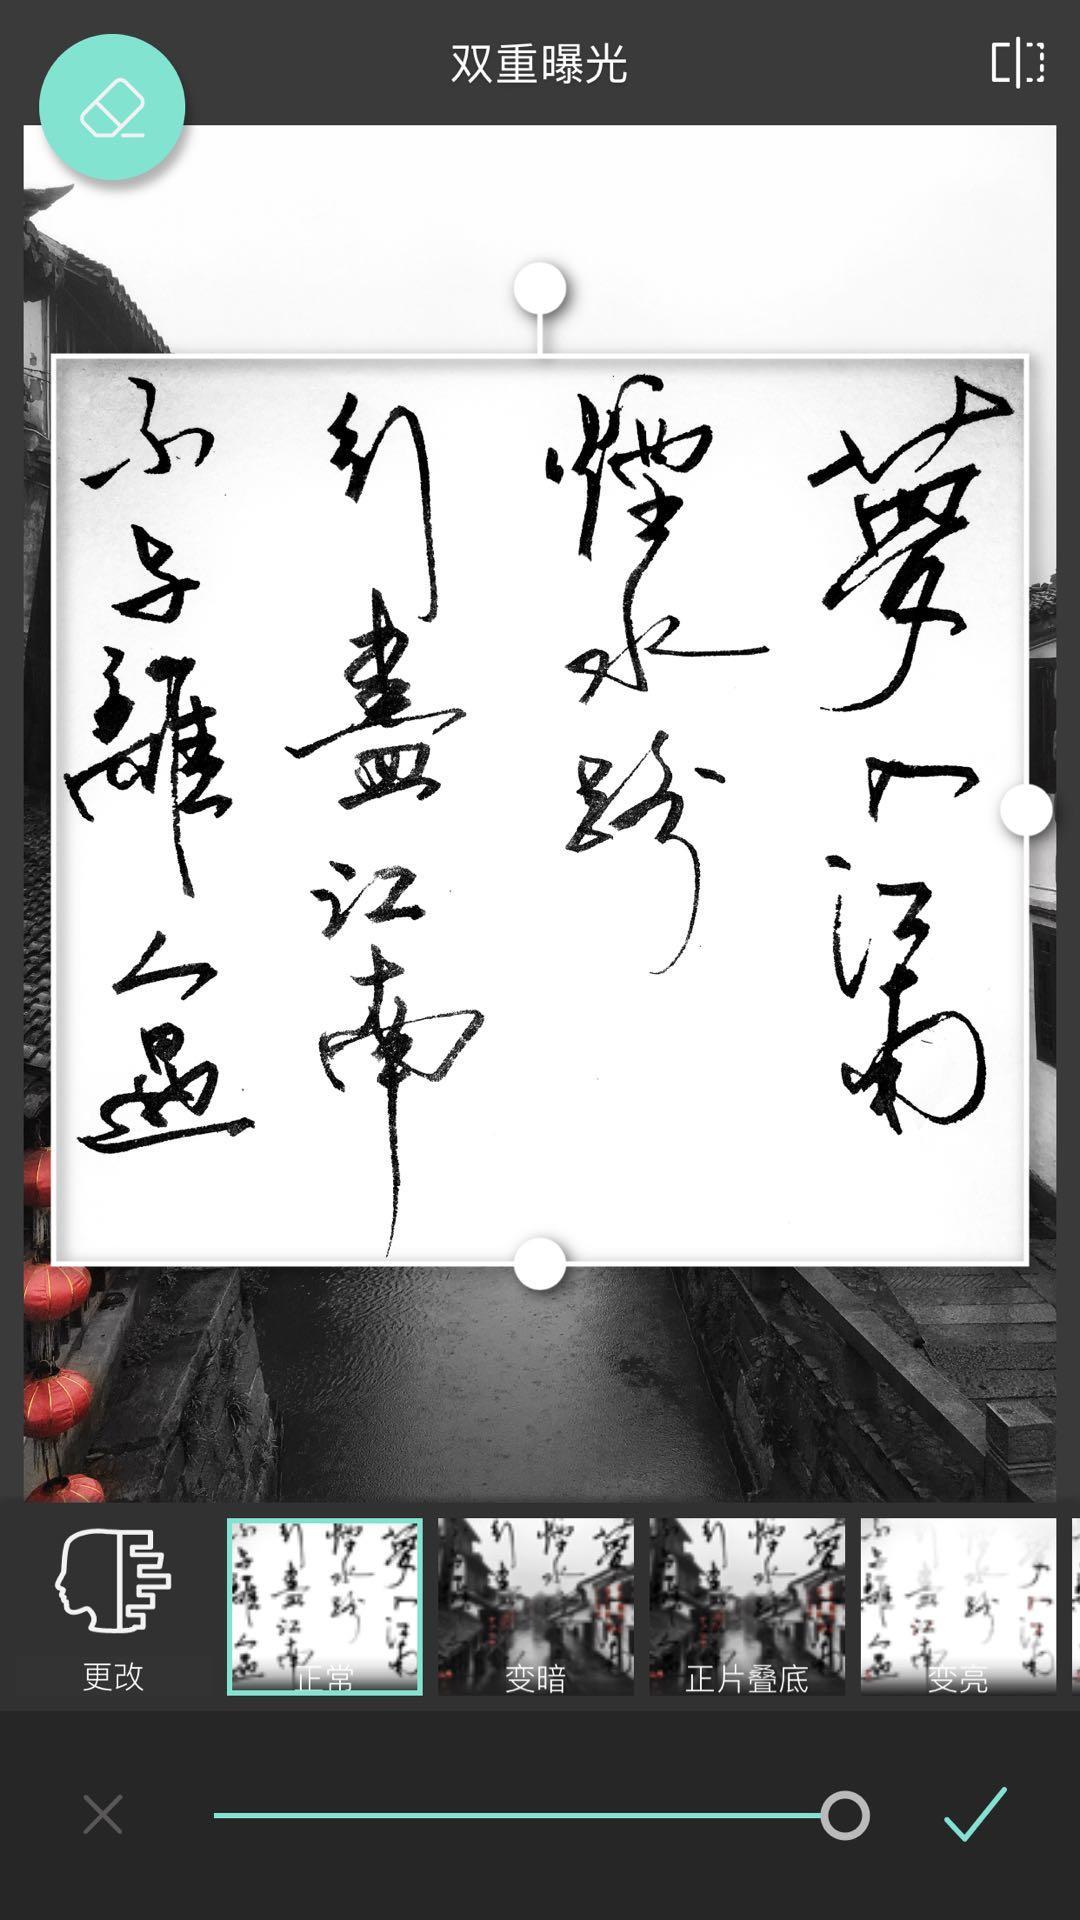 双重曝光
夢入江南
煙水路
行盡江南
不与離人遇
更改
正常
变暗
正片叠底
变亮